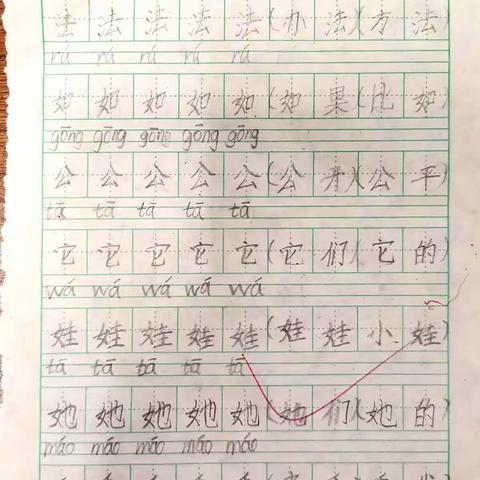 法 法 法 法 法 (办 法)(方 法)
rú rú rú rú rú
如 如 如 如 如 (如 果)(比 如)
gōng gōng gōng gōng gōng
公 公 公 公 公 (公 开)(公 平)
tā tā tā tā tā
它 它 它 它 它 (它 们)(它 的)
wá wá wá wá wá
娃 娃 娃 娃 娃 (娃 娃 小 娃)
tā tā tā tā tā
她 她 她 她 她 (她 们)(她 的)
máo máo máo máo máo